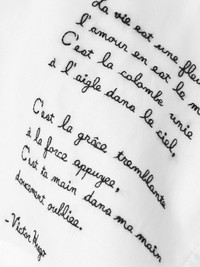 La vie est une fleu
l'amour en est la m
C'est la colombe unie
à l'aigle dans le ciel,
C'est la grâce tremblante
à la force appuyée,
C'est ta main dans ma main
doucement oubliée.
-Victor Hugo